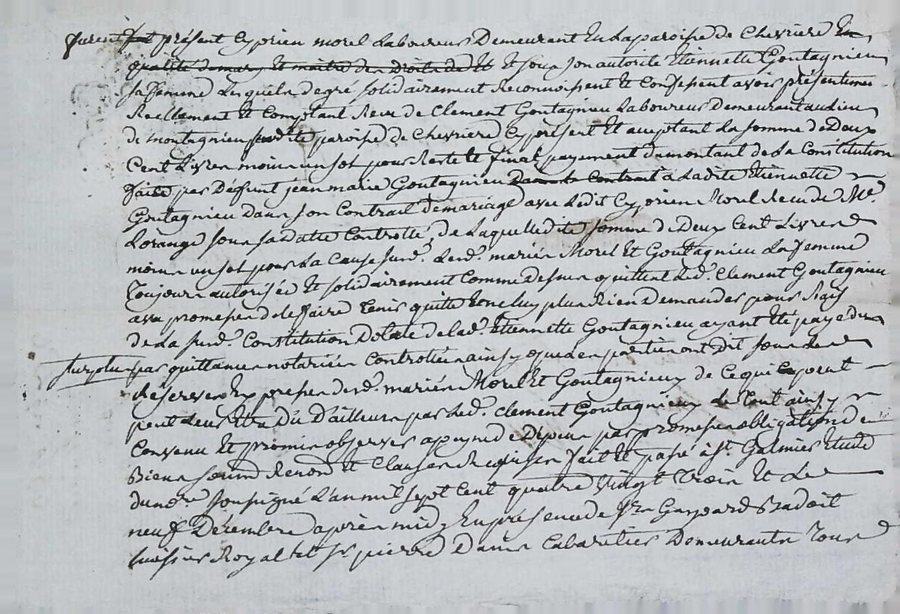 furent present Cyprien morel Laboureur Demeurant En La paroisse de Chevriere En
qualité de mary Et maitre des Droits de Et Et sous son autorité Etiennette Goutagnieu
sa femme Lesquels de gré solidairement Reconnoissent Et Confessent avoir présentement
Reellement Et Comptant Recu de Clement Goutagnieu Laboureur Demeurant audieu
de montagnieu paroisse de Chevriere Cy présent Et acceptant La somme de Deux
Cent Livres moins un sol pour Reste Et final payement du montant de La Constitution
faite par Deffunt jean marie Goutagnieu dans le Contrat a Ladite Etiennette
Goutagnieu Dans son Contrait de mariage avec Ledit Cyprien Morel Recu de Me.
Lorange sous sa datte Controllé, de Laquelle dite somme de Deux Cent Livres
moins un sol pour La Cause susd. Lesd. mariés Morel Et Goutagnieu La femme
toujours autorisée Et solidairement Comme dessus quittent Led. Clement Goutagnieu
avec promesse de le faire tenir quitte Et ne luy plus Rien demander pour Raison
de La susd. Constitution Dotale de lad. Etiennette Goutagnieu ayant été payé du
surplus par quittances notariées Controllées ainsy que les parties ont Dit sous Les
Réserves Expresses desd. mariés Morel Et Goutagnieux de Ce qui Cy peut
peut Leur Etre Dû D'ailleurs par Led. Clement Goutagnieux Le tout ainsy
Convenu Et promis observer a peyne de Depens par promesses obligation de
Biens soumis Renon. Et Clauses Requises fait Et passé a St. Galmier Etude
du nore. soussigné L'an mil sept Cent quatre vingt trois Et Le
neuf Décembre après midy En présence de Sr. Gaspard Badoit
huissier Royal Et Sr. pierre Dumas Cabaretier Demeurants tous